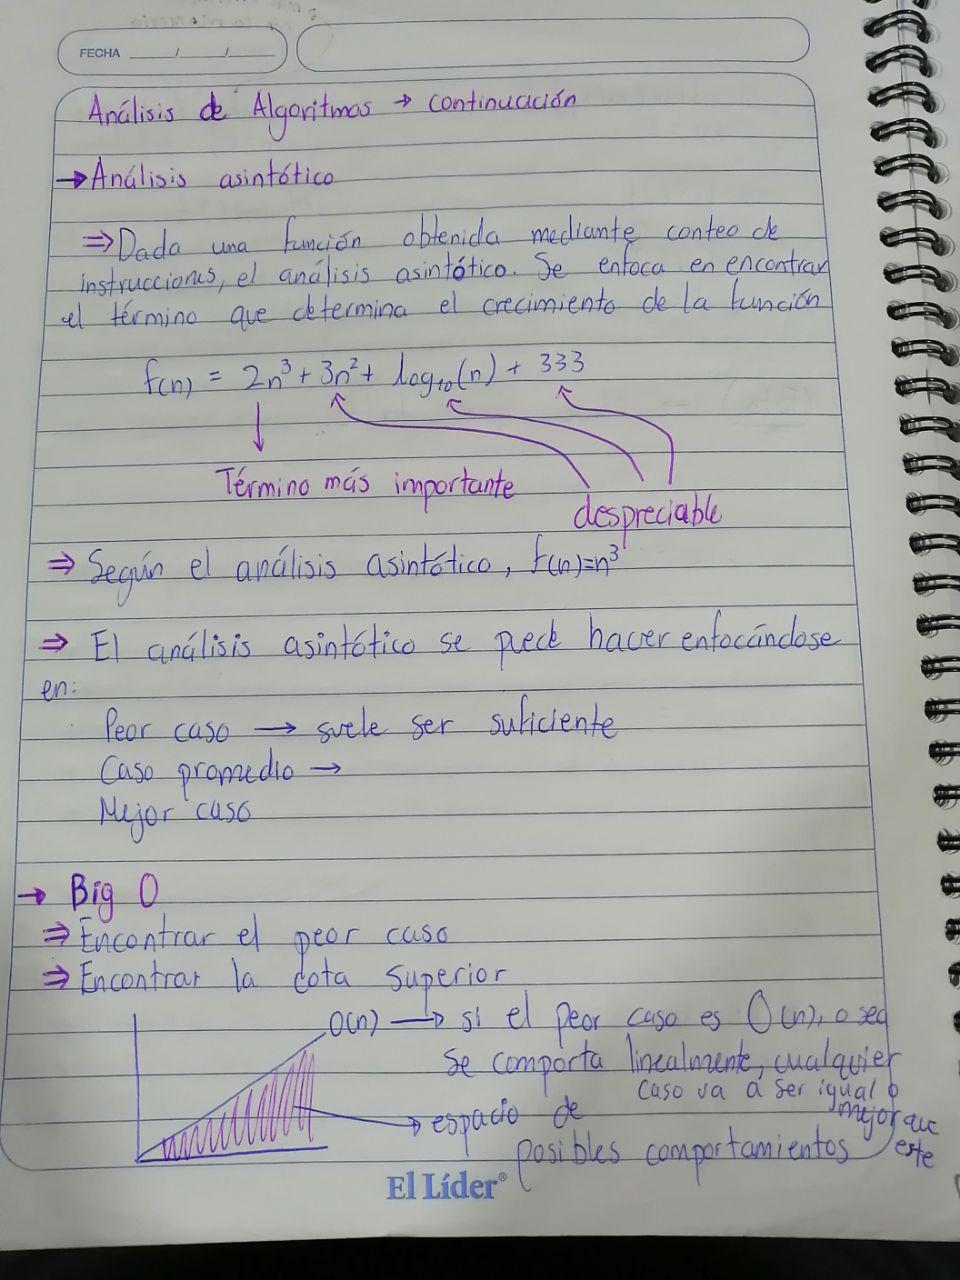 FECHA ____/____/____
Análisis de Algoritmos → continuación
→ Análisis asintótico
⇒ Dada una función obtenida mediante conteo de
instrucciones, el análisis asintótico. Se enfoca en encontrar
el término que determina el crecimiento de la función
f(n) = 2n³ + 3n² + log₁₀(n) + 333
Término más importante
despreciable
⇒ Según el análisis asintótico, f(n)=n³
⇒ El análisis asintótico se puede hacer enfocándose
en:
Peor caso → suele ser suficiente
Caso promedio →
Mejor caso
→ Big O
⇒ Encontrar el peor caso
⇒ Encontrar la cota superior
O(n) → si el peor caso es O(n), o sea
se comporta linealmente, cualquier
caso va a ser igual o
mejor que
este
→ espacio de
posibles comportamientos
El Líder®